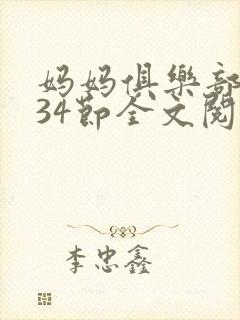 妈妈俱樂部
34節全文閱
李忠鑫